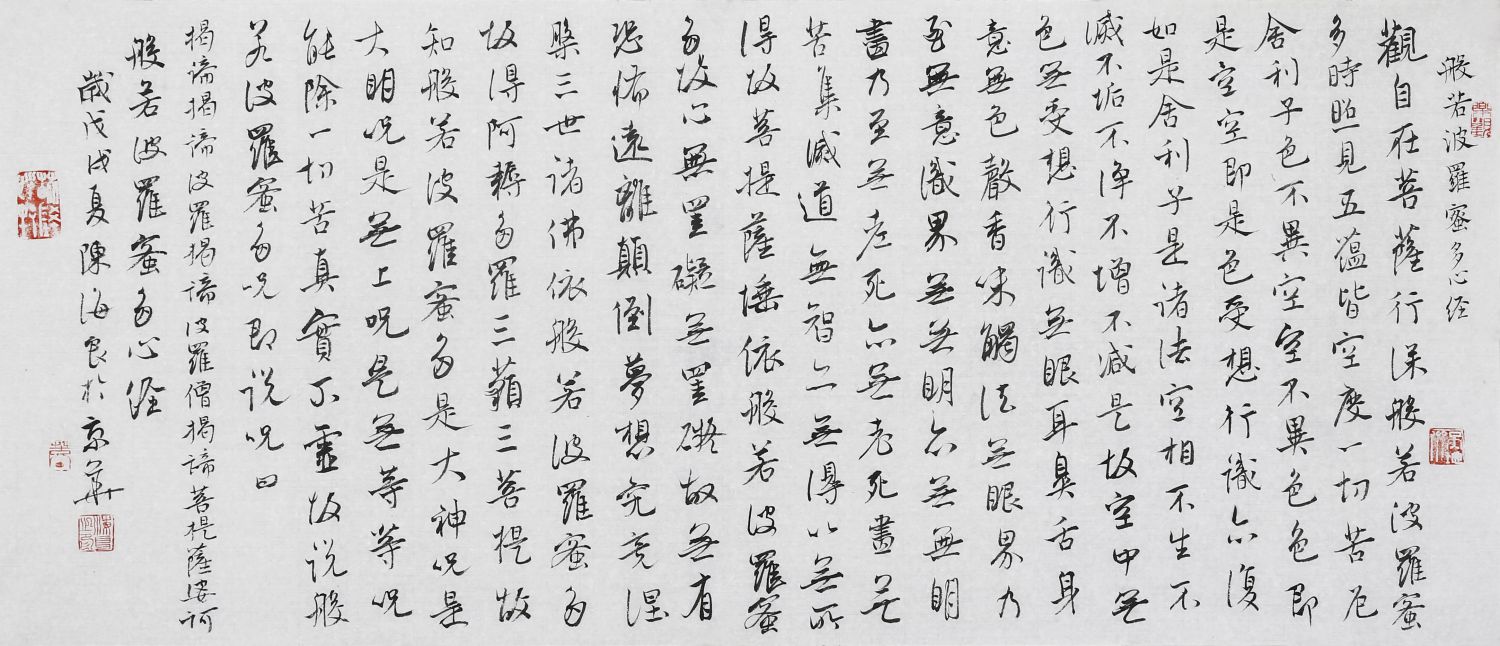 般若波羅蜜多心经
觀自在菩薩行深般若波羅蜜
多時照見五蕴皆空度一切苦厄
舍利子色不異空空不異色色即
是空空即是色受想行識亦復
如是舍利子是诸法空相不生不
滅不垢不净不增不减是故空中无
色无受想行識无眼耳鼻舌身
意无色聲香味觸法无眼界乃
至無意識界无无明亦无無明
盡乃至无老死亦无老死盡无
苦集滅道無智亦无得以无所
得故菩提薩埵依般若波羅蜜
多故心無罣礙无罣礙故无有
恐怖遠離顛倒夢想究竟涅
槃三世诸佛依般若波羅蜜多
故得阿耨多羅三藐三菩提故
知般若波羅蜜多是大神咒是
大明咒是无上咒是无等等咒
能除一切苦真實不虚故说般
若波羅蜜多咒即说咒曰
揭諦揭諦波羅揭諦波羅僧揭諦菩提薩婆訶
般若波羅蜜多心经
歲戊戌夏陳海良於京華